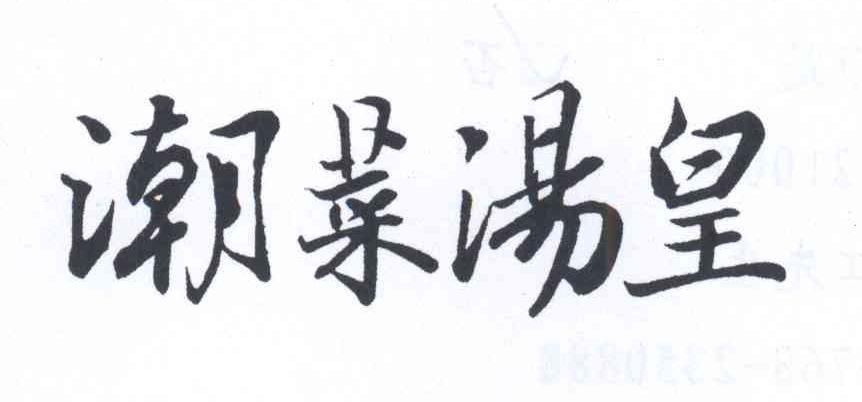 潮菜湯皇